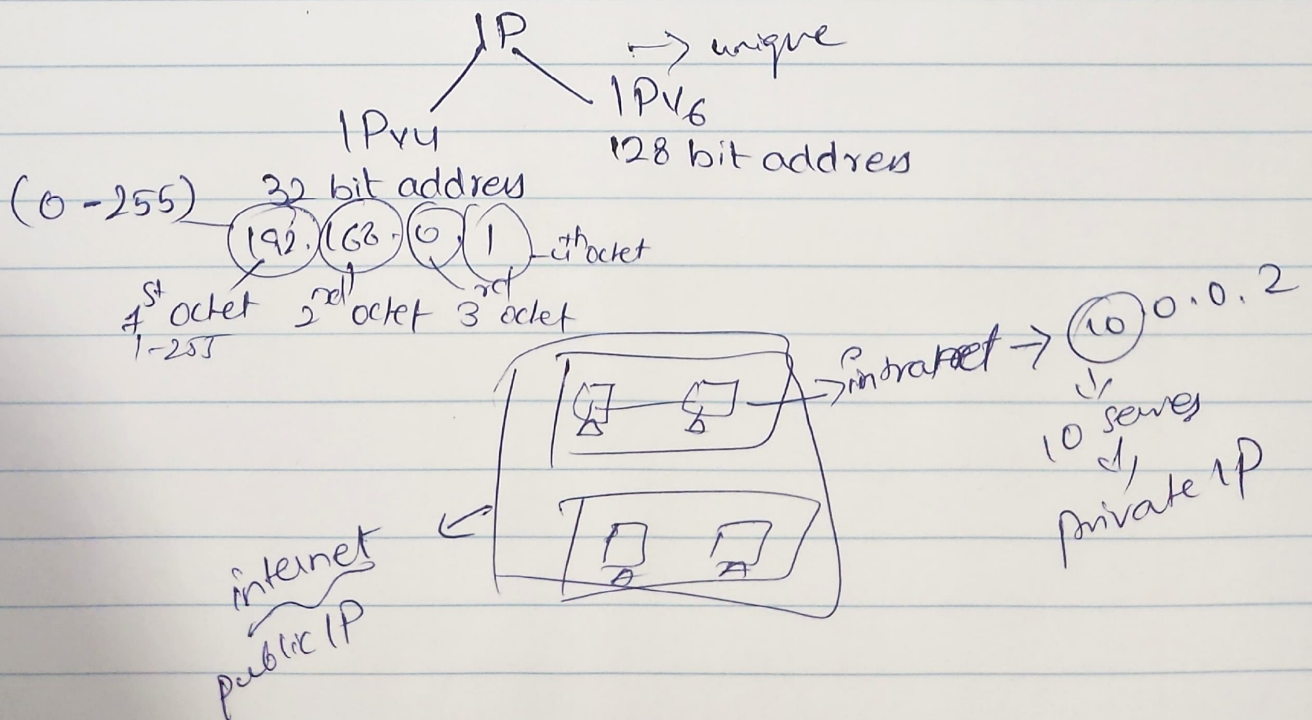 IP
→ unique
IPv4
IPV6
128 bit address
32 bit address
(0-255)
192.168.0.1
4th octet
1st octet
2nd octet
3rd octet
1-255
intranet → 10 0.0.2
10 series
private IP
internet
public IP